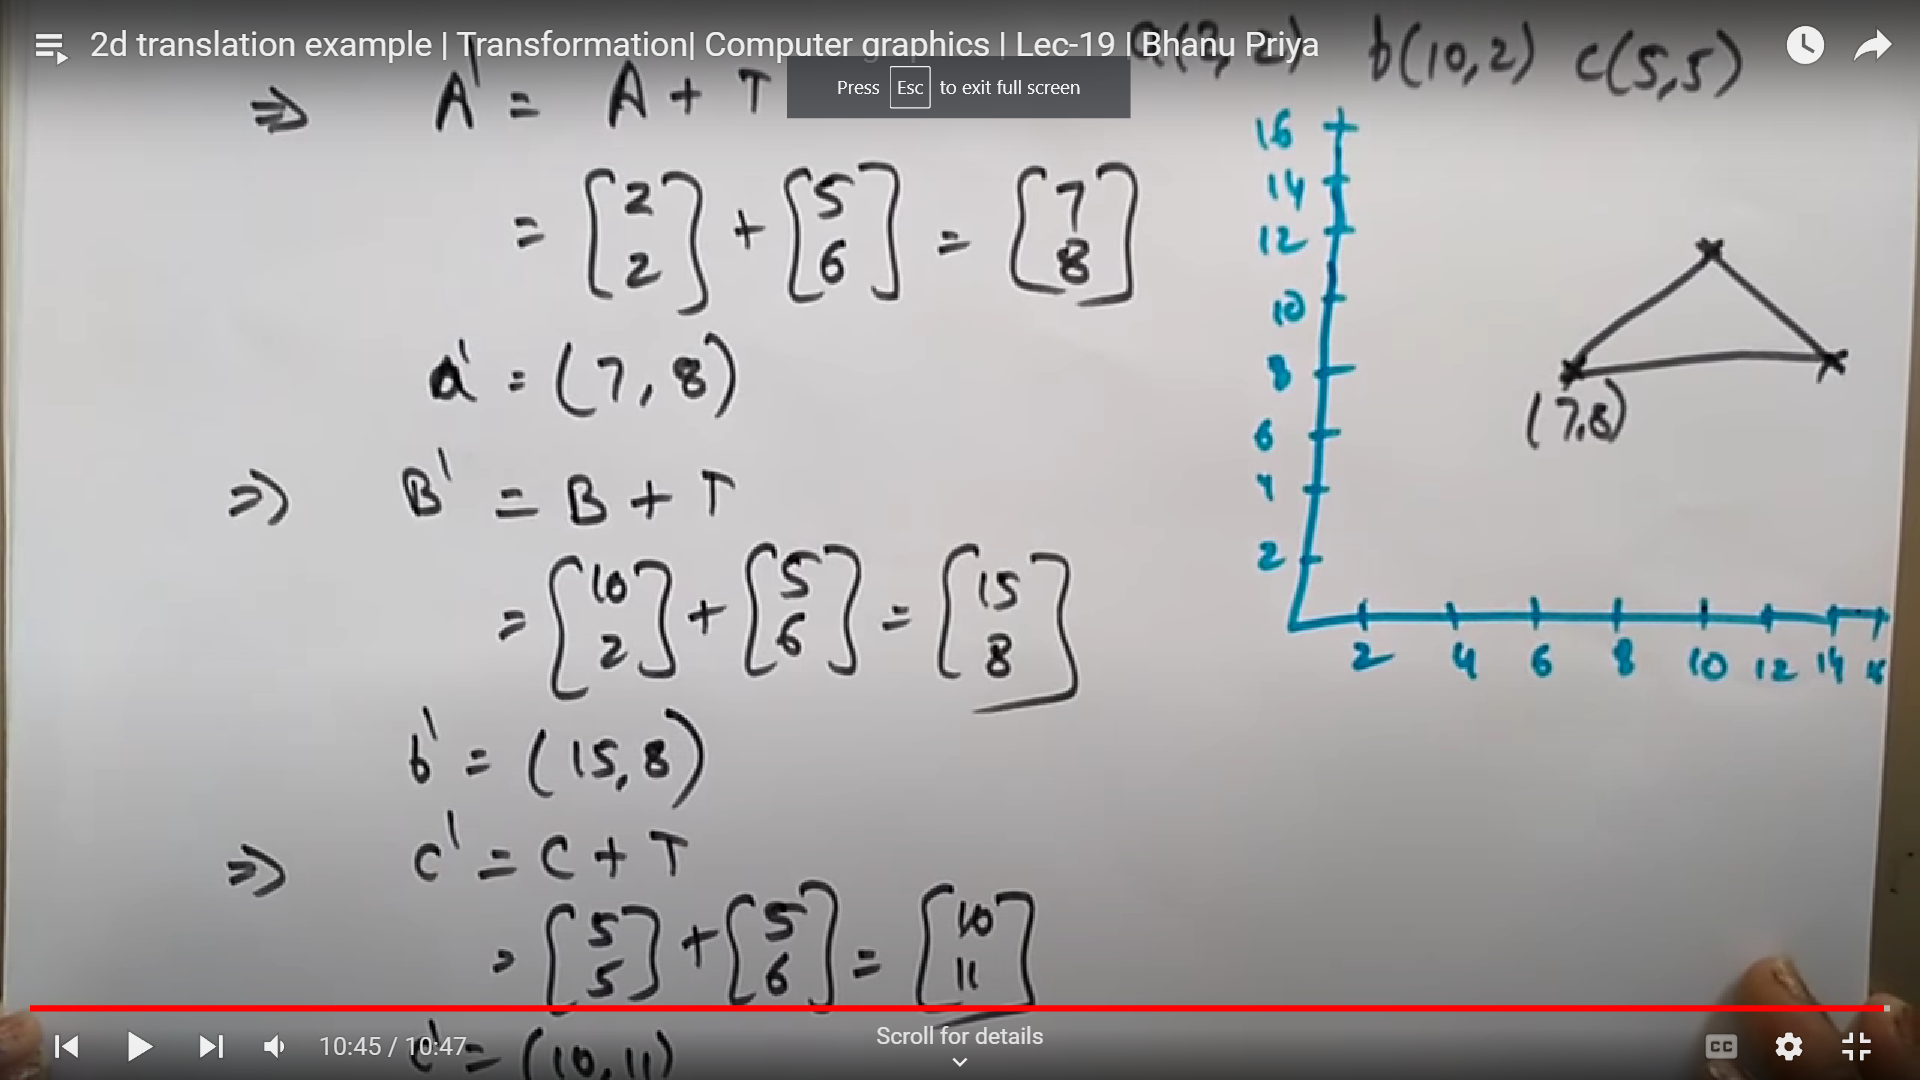 2d translation example | Transformation| Computer graphics | Lec-19 | Bhanu Priya
Press Esc to exit full screen
a(2,2) b(10,2) c(5,5)
⇒ A' = A + T
= [2 2] + [5 6] = [7 8]
a' = (7, 8)
⇒ B' = B + T
= [10 2] + [5 6] = [15 8]
b' = (15, 8)
⇒ C' = C + T
= [5 5] + [5 6] = [10 11]
c' = (10, 11)
16
14
12
10
8
6
4
2
2 4 6 8 10 12 14 16
(7,8)
10:45 / 10:47
Scroll for details
CC